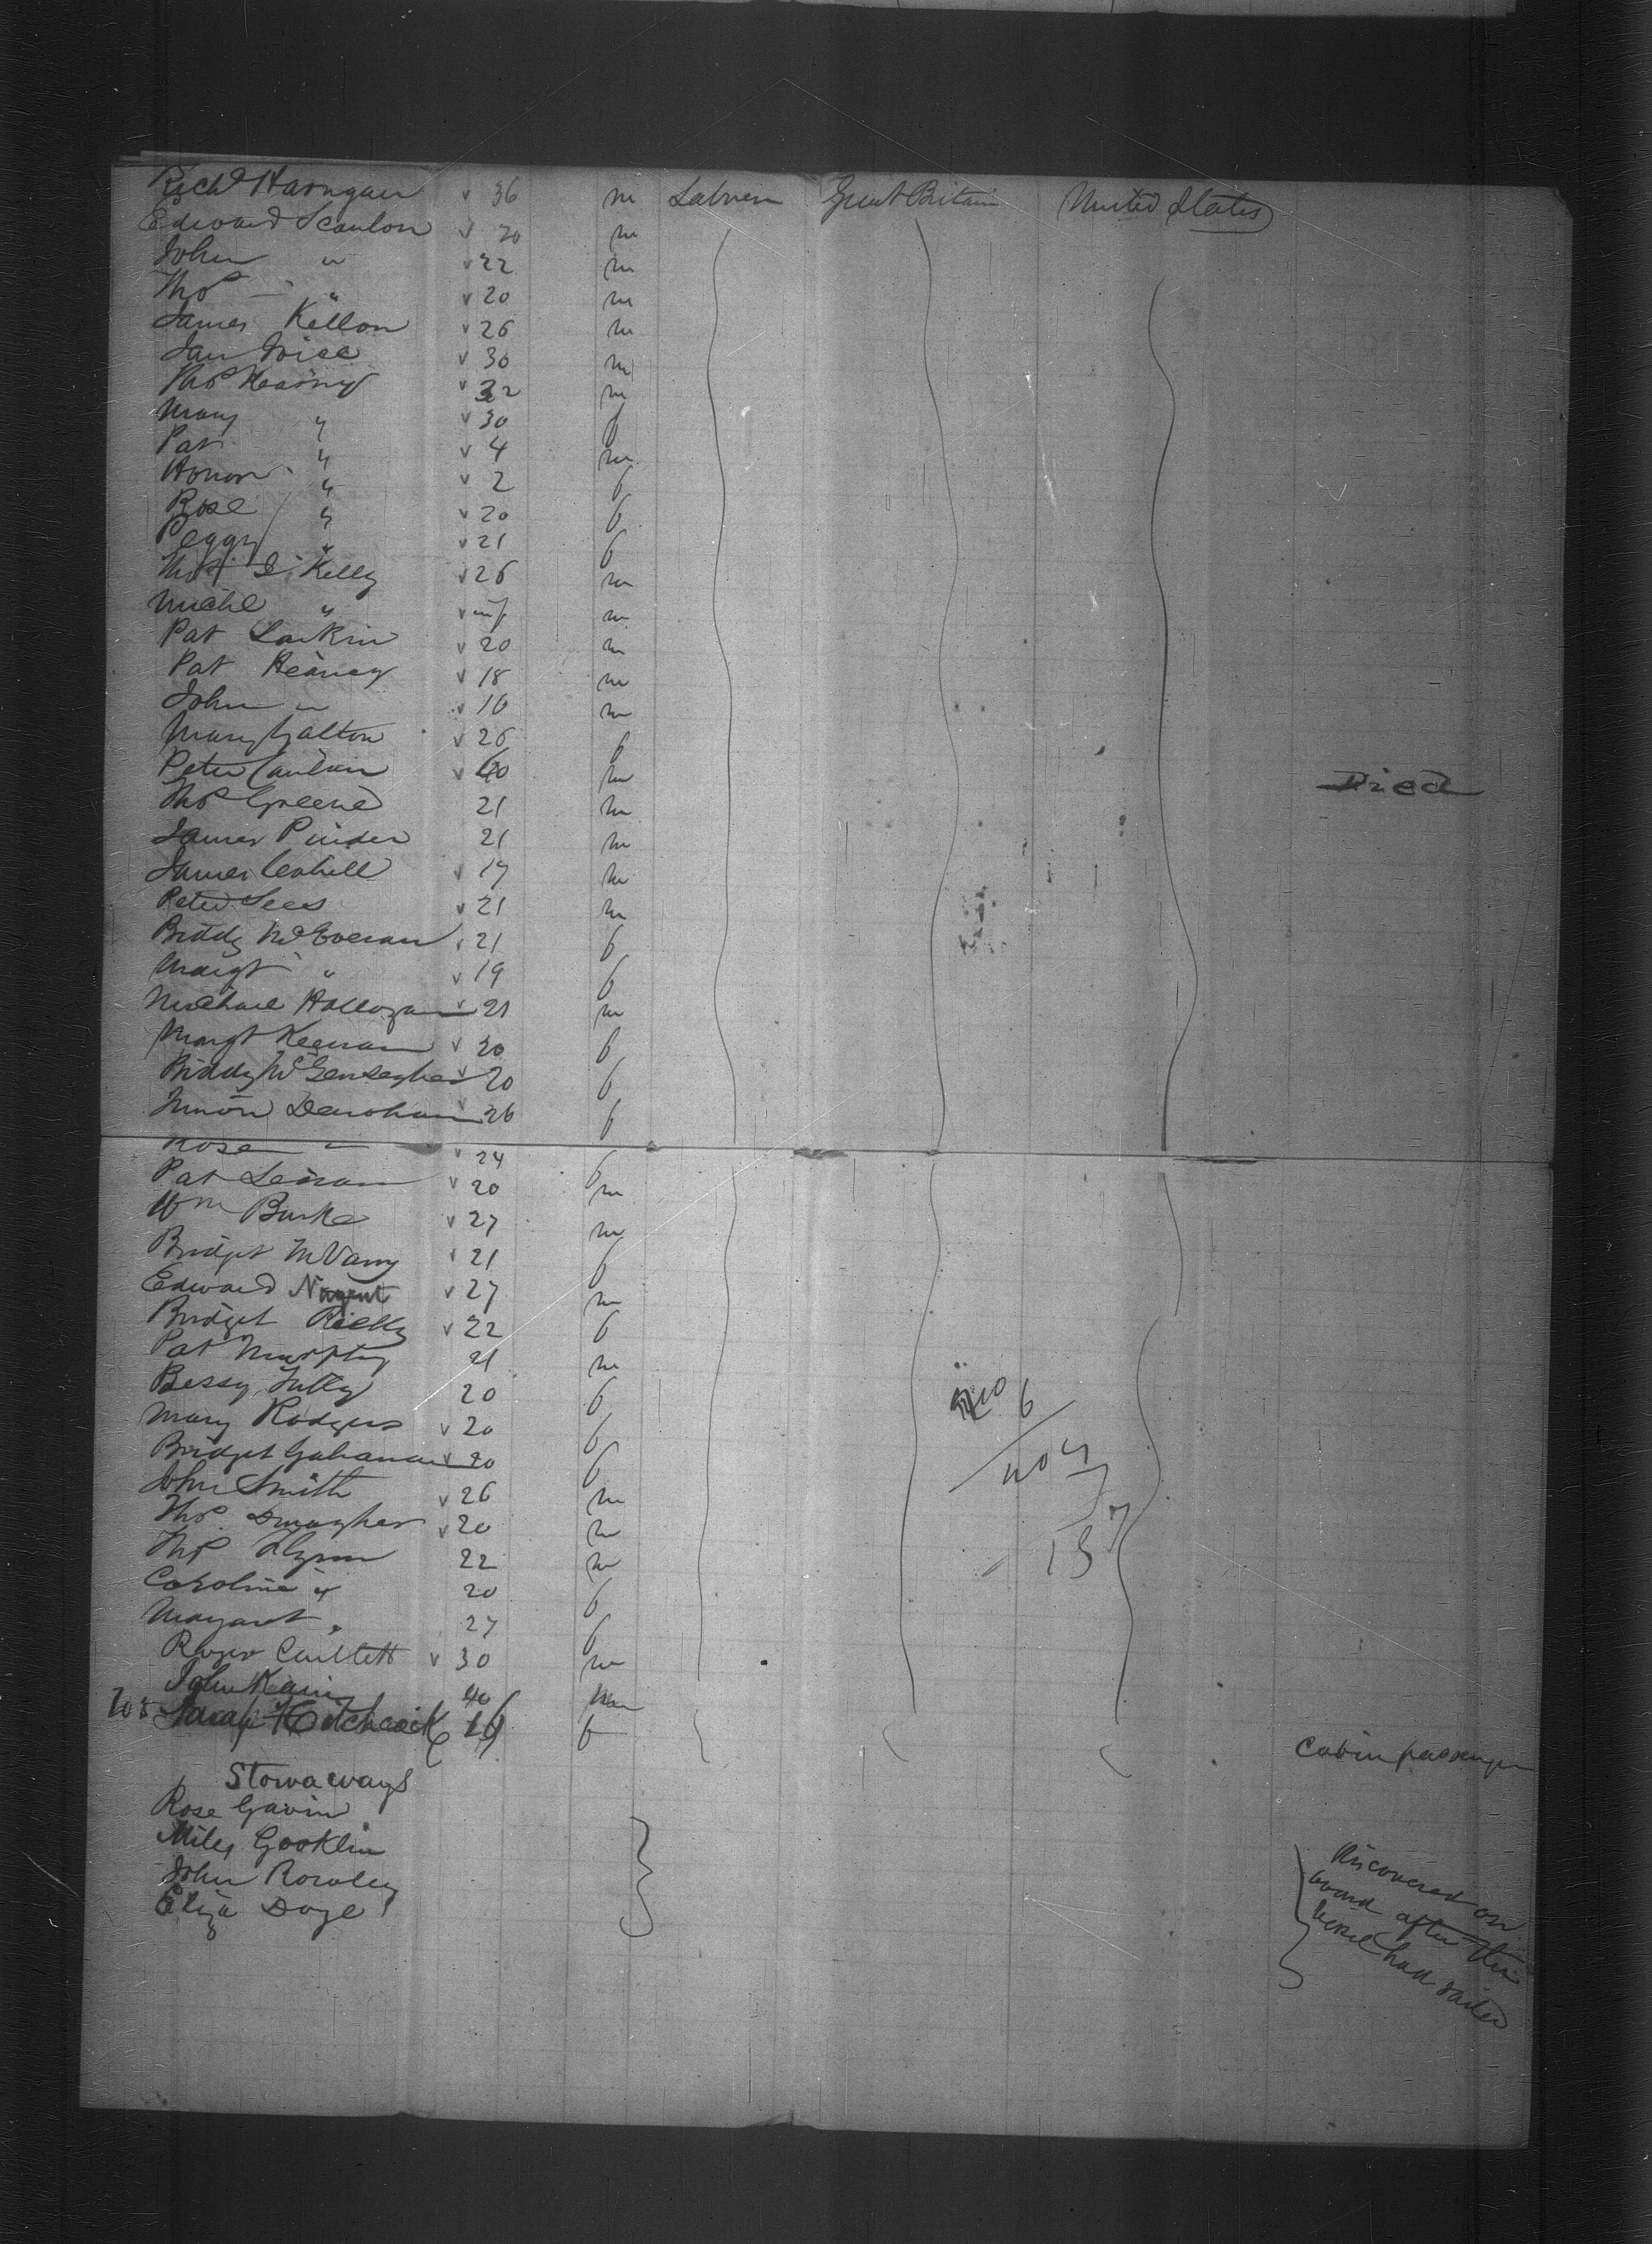 Richd Harngan v 36 m Labrer Great Britain United States
Edward Scanlon v 20 m
John " v 22 m
Thos " v 20 m
James Kellon v 26 m
Jan Joice v 30 m
Thos Kearny v 32 m
Mary " v 30 f
Pat " v 4 m
Honor " v 2 f
Rose " v 20 f
Peggy " v 21 f
Kelly v 26 m
Michl " v inf m
Pat Larkin v 20 m
Pat Heaney v 18 m
John " v 16 m
Mary Galton v 26 f
Peter Canlan v 40 m Died
Thos Greene 21 m
James Pinder 21 m
James Cahill v 17 m
Peter Lees v 21 m
Biddy v 21 f
Margt " v 19 f
Michael Hallogan v 21 m
Margt Keenan v 20 f
Biddy v 20 f
v 26 f
Rose " v 24 f
Pat v 20 m
Wm Burke v 27 m
Bridget v 21 f
Edward Nugent v 27 m
Bridget Rielly v 22 f
Pat Murphy 21 m
Bessy Tully 20 f
Mary Rodgers v 20 f
Bridget Gahanan v 20 f
John Smith v 26 m
Thos v 20 m
Thos Flynn 22 m
Caroline " 20 f
Margaret " 27 f
Roger v 30 m
John Kain 40 m
705 Sarah Hotchcock 16 f Cabin passenger
Stowaways
Rose Gavin
Miles Gooklin
John Rowley
Eliza Doyle
Discovered on
board after the
vessel had sailed